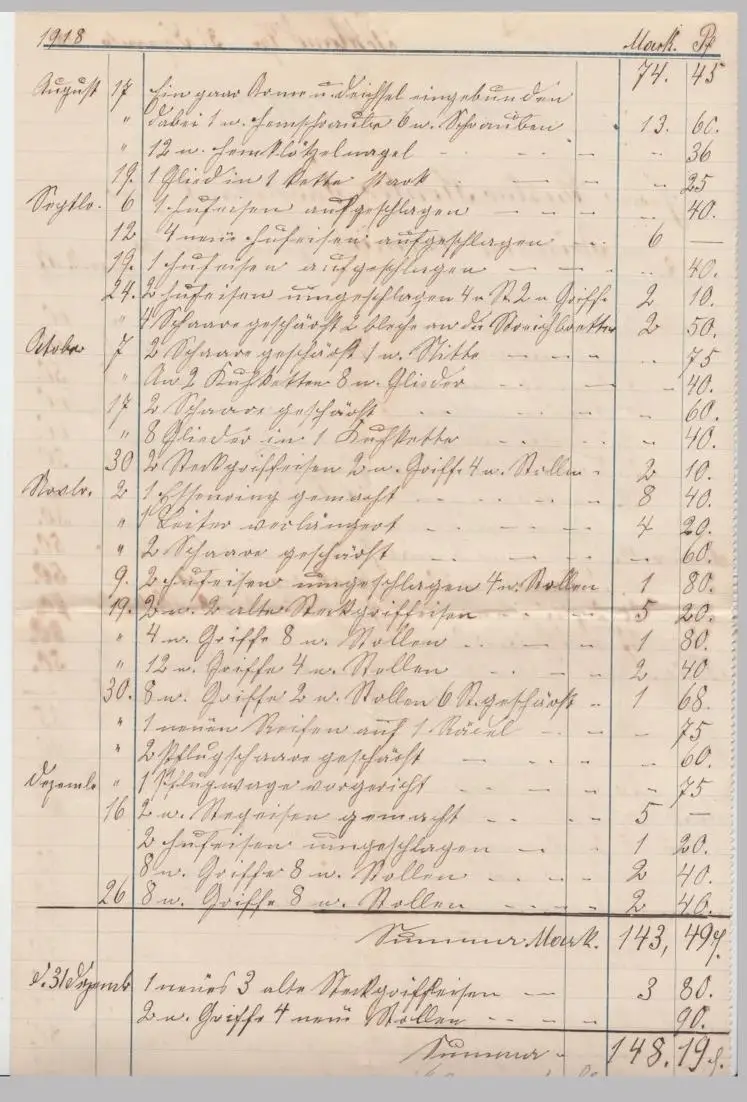 1918 Mark. Pf
74. 45
August 17 Ein paar Arme u. Deichsel eingebunden
" dabei 1 n. Hemschraube 6 n. Schrauben 13. 60.
" 12 n. Hemklötzelnagel - - - " 36
19. 1 Glied in 1 Kette stark - - - " 25
Septbr. 6 1 Hufeisen aufgeschlagen - - - - " 40.
12 4 neue Hufeisen aufgeschlagen - - 6 —
19. 1 Hufeisen aufgeschlagen - - - " 40.
24. 2 Hufeisen umgeschlagen 4 n St. 2 n Griffe 2 10.
" 4 Schaare geschärft 2 bleche an die Streichbretter 2 50.
October 7 2 Schaare geschärft 1 n. - - - " 75
" An 2 Kuhketten 8 n. Glieder - - - 40.
17 2 Schaare geschärft - - - - " 60.
" 8 Glieder in 1 Kuhkette - - - " 40.
30 2 Steckgriffeisen 2 n. Griffe 4 n. Stollen - 2 10.
Novbr. 2 1 Essenring gemacht - - - - 8 40.
" 1 Leiter verlängert - - - - 4 20.
" 2 Schaare geschärft - - - - " 60.
9. 2 Hufeisen umgeschlagen 4 n. Stollen 1 80.
19. 2 n. 2 alte Steckgriffeisen - - - 5 20.
" 4 n. Griffe 8 n. Stollen - - - 1 80.
" 12 n. Griffe 4 n. Stollen - - - 2 40
30. 8 n. Griffe 2 n. Stollen 6 St. geschärft - 1 68.
" 1 neuen Reifen auf 1 Rädel - - - - 75
" 2 Pflugschaare geschärft - - - - 60.
Dezembr " 1 Pflugwage vorgericht - - - " 75
16 2 n. Stegeisen gemacht - - - 5 —
2 Hufeisen umgeschlagen - - - 1 20.
8 n. Griffe 8 n. Stollen - - - 2 40.
26 8 n. Griffe 8 n. Stollen - - - 2 40.
Summa Mark. 143, 49 Pf.
d. 31 Dezemb. 1 neues 3 alte Steckgriffeisen - - 3 80.
2 n. Griffe 4 neue Stollen - - - - 90.
Summa - 148. 19 Pf.